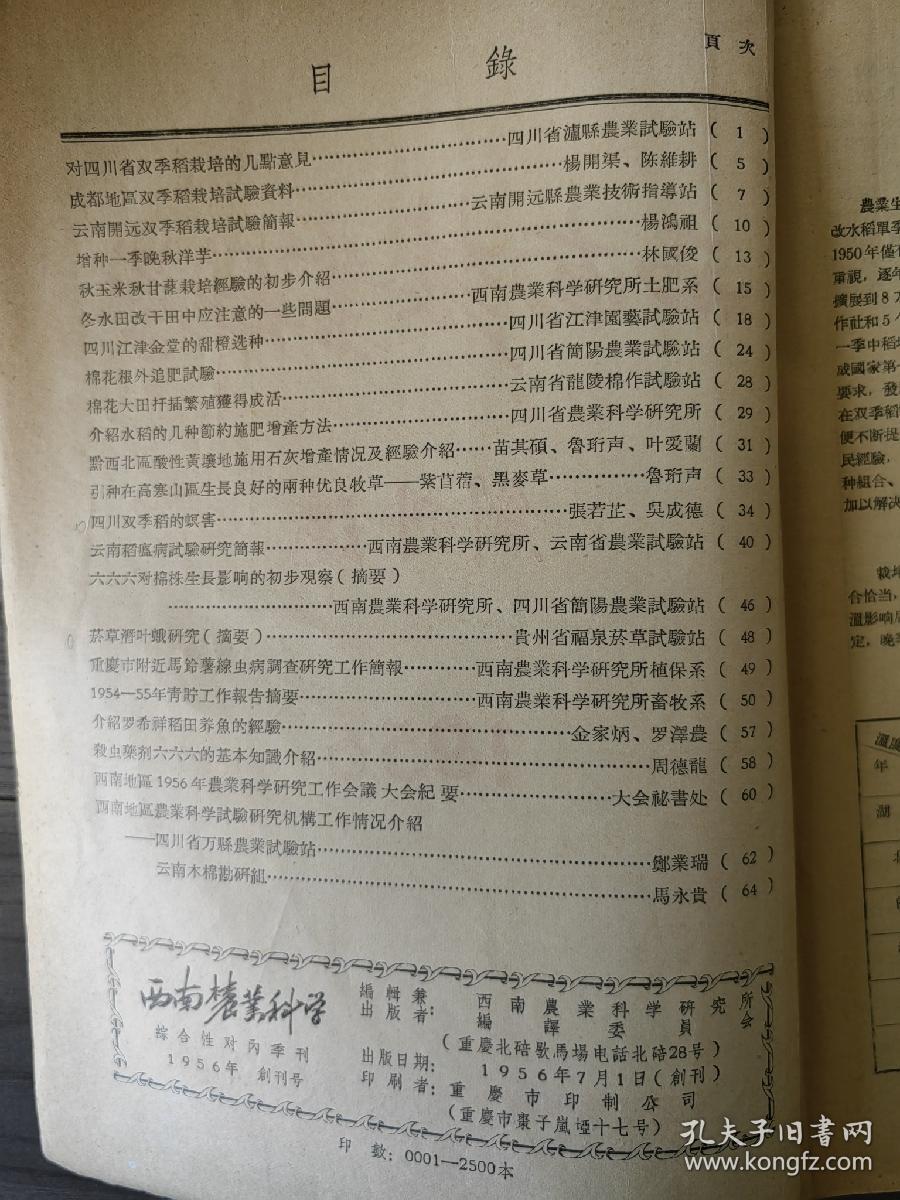 目 錄
頁 次
对四川省双季稻栽培的几點意見……四川省瀘縣農業試驗站 ( 1 )
成都地區双季稻栽培試驗資料……楊開渠、陈維耕 ( 5 )
云南開远双季稻栽培試驗簡報……云南開远縣農業技術指導站 ( 7 )
增种一季晚秋洋芋……楊鴻祖 ( 10 )
秋玉米秋甘藷栽培經驗的初步介紹……林國俊 ( 13 )
冬水田改干田中应注意的一些問題……西南農業科学硏究所土肥系 ( 15 )
四川江津金堂的甜橙选种……四川省江津園藝試驗站 ( 18 )
棉花根外追肥試驗……四川省簡陽農業試驗站 ( 24 )
棉花大田扦插繁殖獲得成活……云南省龍陵棉作試驗站 ( 28 )
介紹水稻的几种節約施肥增產方法……四川省農業科学硏究所 ( 29 )
黔西北區酸性黃壤地施用石灰增產情况及經驗介紹……苗其碩、魯珩声、叶爱蘭 ( 31 )
引种在高寒山區生長良好的兩种优良牧草——紫苜蓿、黑麥草……魯珩声 ( 33 )
四川双季稻的螟害……張若芷、吳成德 ( 34 )
云南稻瘟病試驗硏究簡報……西南農業科学硏究所、云南省農業試驗站 ( 40 )
六六六对棉株生長影响的初步观察 ( 摘要 )
……西南農業科学硏究所、四川省簡陽農業試驗站 ( 46 )
菸草潛叶蛾硏究 ( 摘要 )……貴州省福泉菸草試驗站 ( 48 )
重慶市附近馬鈴薯線虫病調查硏究工作簡報……西南農業科学硏究所植保系 ( 49 )
1954—55年青貯工作報告摘要……西南農業科学硏究所畜牧系 ( 50 )
介紹罗希祥稻田养魚的經驗……金家炳、罗澤農 ( 57 )
殺虫藥剂六六六的基本知識介紹……周德龍 ( 58 )
西南地區1956年農業科学硏究工作会議大会紀要……大会祕書处 ( 60 )
西南地區農業科学試驗硏究机構工作情况介紹
——四川省万縣農業試驗站……鄭業瑞 ( 62 )
云南木棉勘硏組……馬永貴 ( 64 )
西南農業科学
綜合性对內季刊
1956年 創刊号
編輯兼出版者：西南農業科学硏究所編譯委員会
(重慶北碚歇馬場电話北碚28号)
出版日期：1956年7月1日(創刊)
印刷者：重慶市印制公司
(重慶市棗子嵐埡十七号)
印 數：0001—2500本
農業生
改水稻單季
1950年僅
重視，逐年
擴展到8万
作社和5个
一季中稻
威國家第一
要求，發
在双季稻
便不断提
民經驗，
种組合、
加以解决
栽培
合恰当，
溫影响
定，晚季
溫
年
湖
孔夫子旧書网
www.kongfz.com